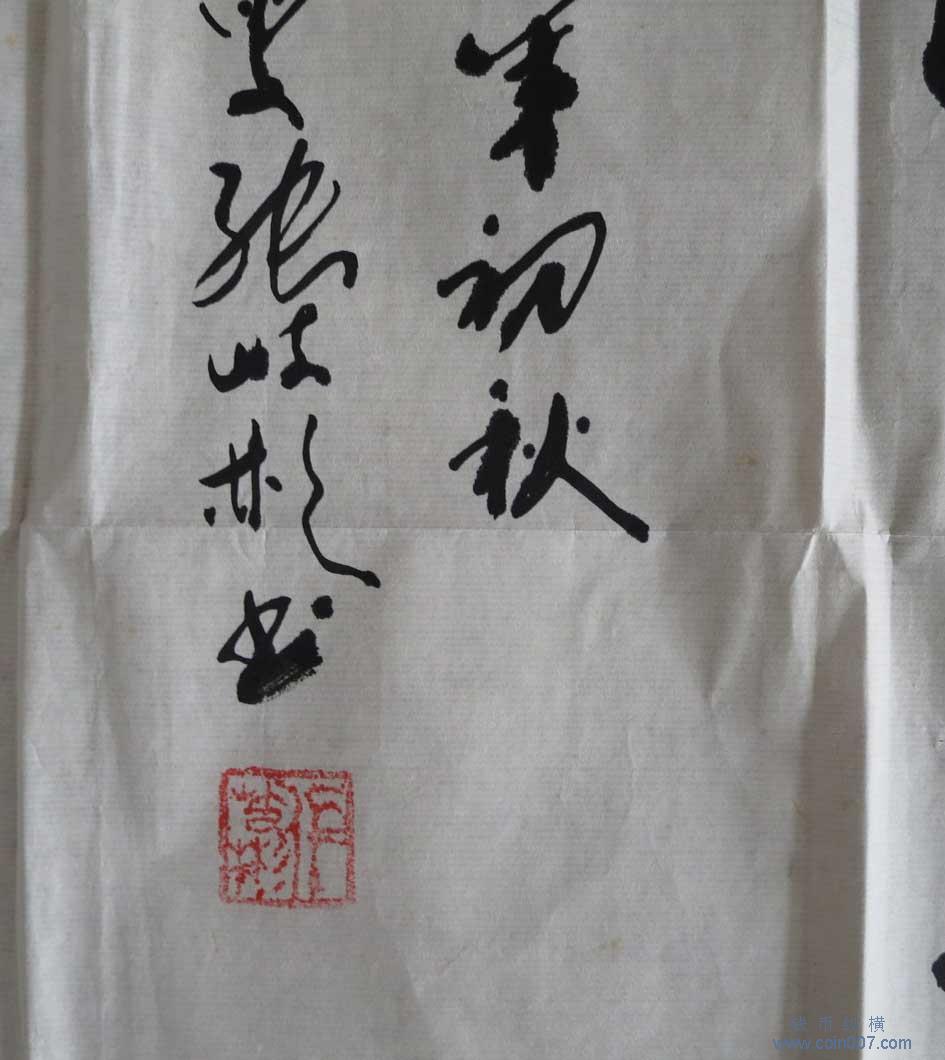 年初秋
张岐彬书
钱币纵横
www.coin007.com